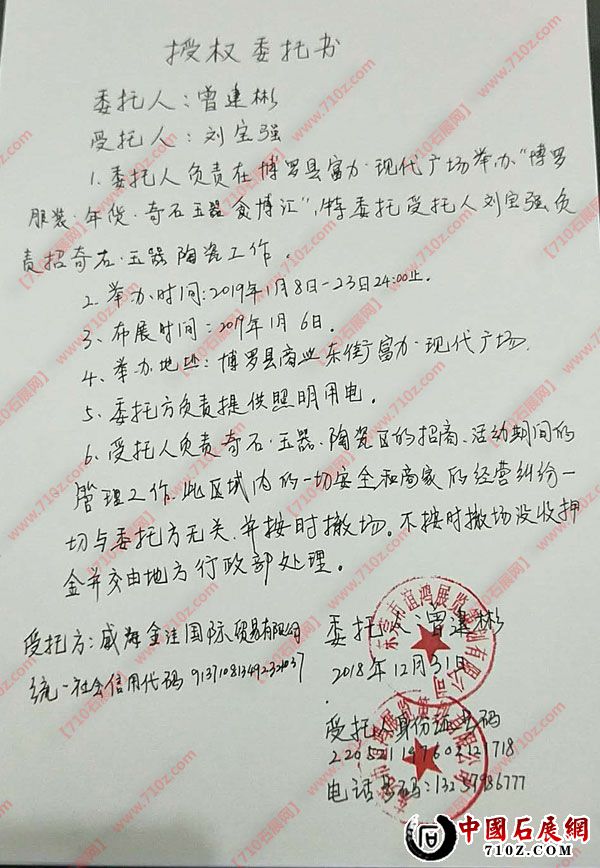 授权委托书
委托人：曾建彬
受托人：刘宝强
1、委托人负责在博罗县富力·现代广场举办“博罗
服装·年货·奇石玉器食博汇”，特委托受托人刘宝强负
责招奇石·玉器陶瓷工作。
2、举办时间：2019年1月8日-23日24:00止.
3、布展时间：2019年1月6日.
4、举办地址：博罗县商业东街富力·现代广场.
5、委托方负责提供照明用电.
6、受托人负责奇石·玉器、陶瓷区的招商、活动期间的
管理工作.此区域内的一切安全和商家的经营纠纷一
切与委托方无关.并按时撤场。不按时撤场没收押
金并交由地方行政部处理。
受托方：威海金洼国际贸易有限公司
统一社会信用代码
委托人：曾建彬
2018年12月31日
受托人身份证号码
电话号码：
中國石展網
710Z.COM
【710石展网】www.710z.com